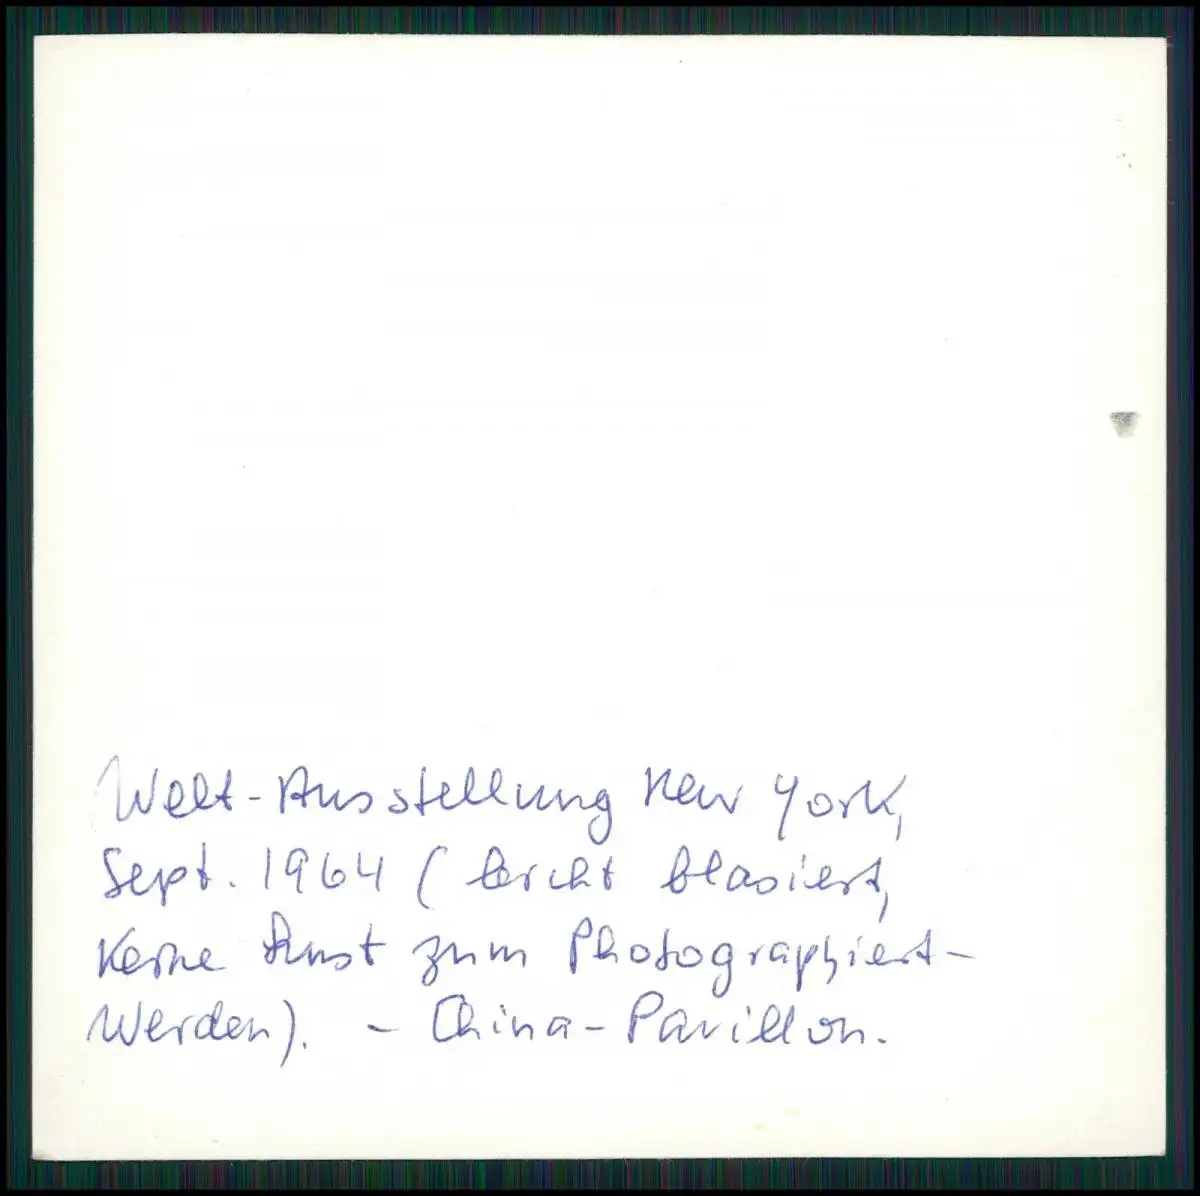 Welt-Ausstellung New York,
Sept. 1964 (leicht blasiert,
keine Lust zum Photographiert-
Werden). - China-Pavillon.